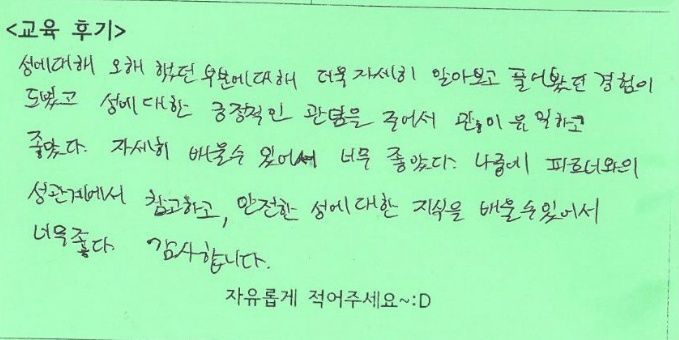 <교육 후기>
성에대해 오해 했던 부분에대해 더욱 자세히 알아보고 풀어봤던 경험이
됬고 성에 대한 긍정적인 관념을 주어서 유익하고
좋았다. 자세히 배울수 있어서 너무 좋았다. 나중에 파트너와의
성관계에서 참고하고, 안전한 성에대한 지식을 배울수있어서
너무좋다. 감사합니다.
자유롭게 적어주세요~:D